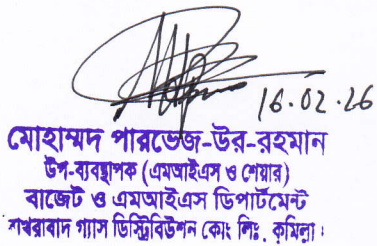 16.02.26
মোহাম্মদ পারভেজ-উর-রহমান
উপ-ব্যবস্থাপক (এমআইএস ও শেয়ার)
বাজেট ও এমআইএস ডিপার্টমেন্ট
বাখরাবাদ গ্যাস ডিস্ট্রিবিউশন কোং লিঃ, কুমিল্লা।